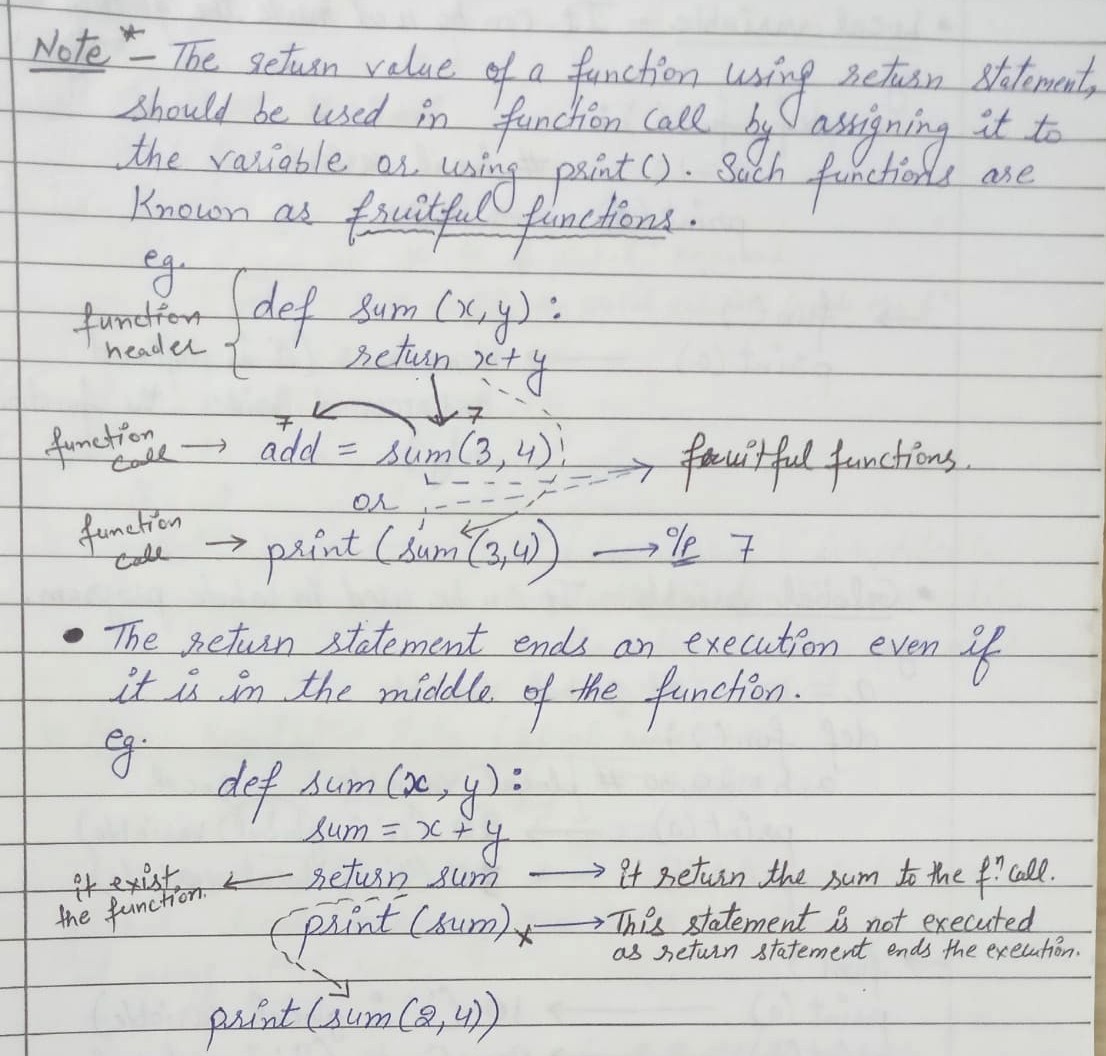 Note* - The return value of a function using return statement,
should be used in function call by assigning it to
the variable or using print(). Such functions are
Known as fruitful functions.
eg.
function header { def sum (x, y) :
return x + y
7 7
function call → add = sum(3, 4) fruitful functions.
or
function call → print (sum (3,4)) → o/p 7
• The return statement ends an execution even if
it is in the middle of the function.
eg.
def sum (x, y) :
sum = x + y
it exist the function. ← return sum → it return the sum to the fn call.
print (sum) x → This statement is not executed
as return statement ends the execution.
print (sum (2, 4))